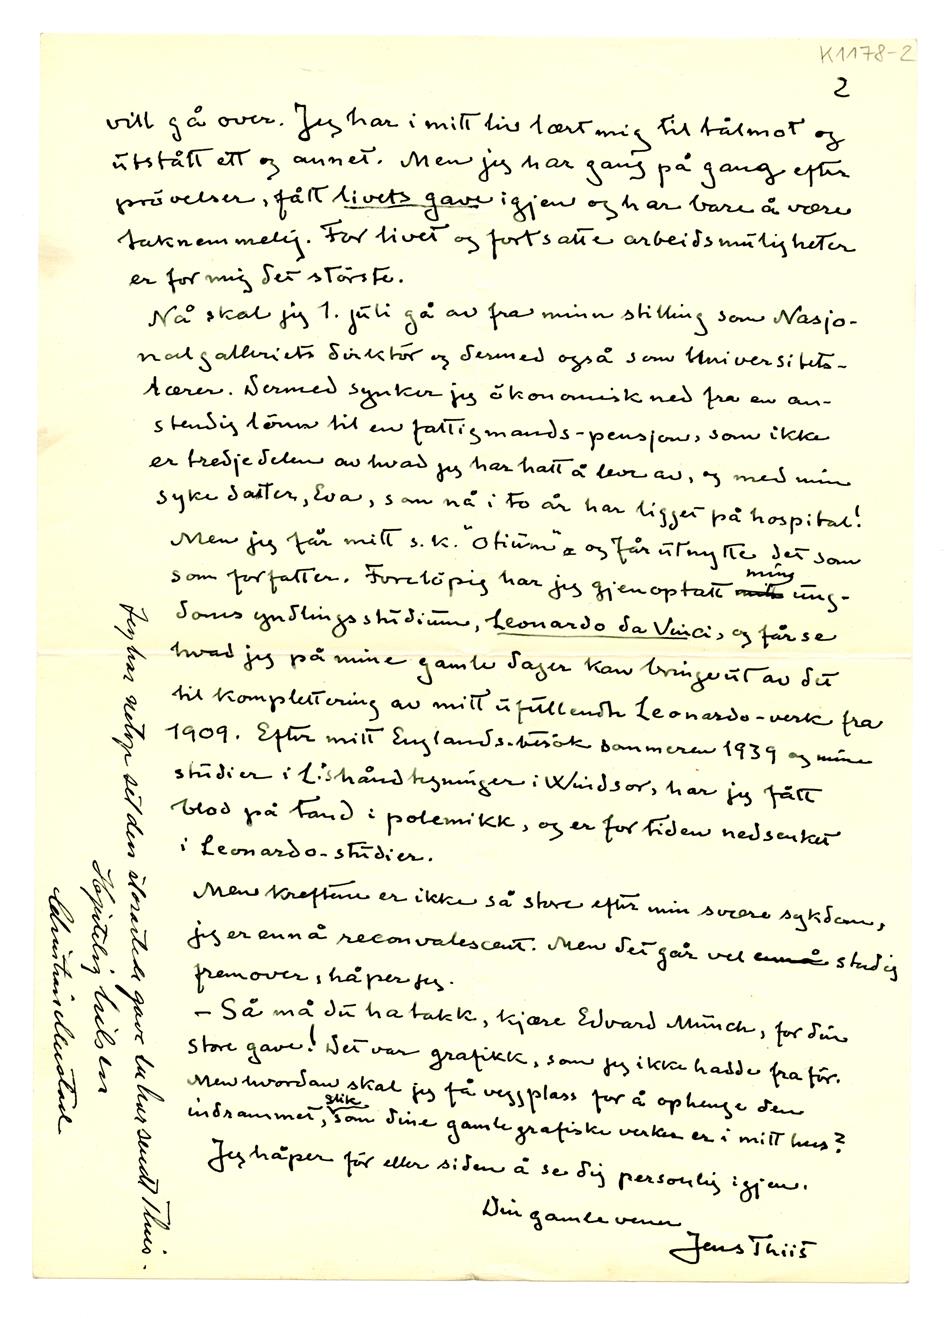 K1178-2
2
vill gå over. Jeg har i mitt liv lært mig til tålmot og
utstått ett og annet. Men jeg har gang på gang efter
prövelser, fått livets gave igjen og har bare å være
taknemmelig. For livet og fortsatte arbeidsmuligheter
er for mig det störste.
Nå skal jeg 1. juli gå av fra min stilling som Nasjo-
nalgalleriets direktör og dermed også som Universitets-
lærer. Dermed synker jeg ökonomisk ned fra en an-
stendig lönn til en fattigmands-pensjon, som ikke
er tredjedelen av hvad jeg har hatt å leve av, og med min
syke datter, Eva, som nå i to år har ligget på hospital!
Men jeg får mitt s.k. "Otium" og får utnytte det som
som forfatter. Forelöpig har jeg gjenoptatt mitt min ung-
doms yndlingsstudium, Leonardo da Vinci, og får se
hvad jeg på mine gamle dager kan bringe ut av det
til komplettering av mitt ufullendte Leonardo-verk fra
1909. Efter mitt Englands-besök sommeren 1939 og mine
studier i L's håndtegninger i Windsor, har jeg fått
blod på tand i polemikk, og er for tiden nedsenket
i Leonardo-studier.
Men kreftene er ikke så store efter min svære sykdom,
jeg er ennå reconvalescent. Men det går vel ennå stadig
fremover, håper jeg.
– Så må du ha takk, kjære Edvard Munch, for din
store gave! Det var grafikk, som jeg ikke hadde fra för.
Men hvordan skal jeg få veggplass for å ophenge den
indrammet, slik som dine gamle grafiske verker er i mitt hus?
Jeg håper för eller siden å se dig personlig igjen.
Din gamle venn
Jens Thiis
Jeg har netop set den storartede gave du har sendt Thiis.
Hjertelig hilsen